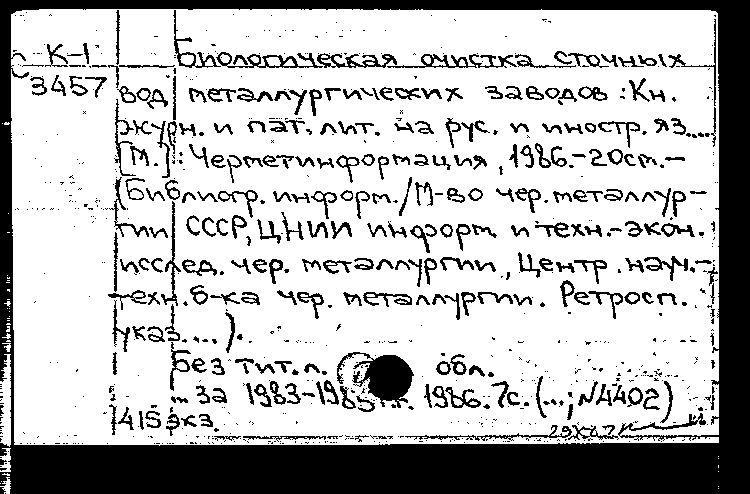 К-1 Биологическая очистка сточных
3457 вод металлургических заводов : Кн.
журн. и пат. лит. на рус. и иностр. яз....
[М.] : Черметинформация, 1986.-20см.-
(Библиогр. информ./М-во чер. металлур-
гии СССР, ЦНИИ информ. и техн.-экон.
исслед. чер. металлургии, Центр. науч.-
техн. б-ка чер. металлургии. Ретросп.
указ....).
Без тит. л. обл.
... за 1983-1985 г.г. 1986. 7с. (...; N4402)
415 экз.